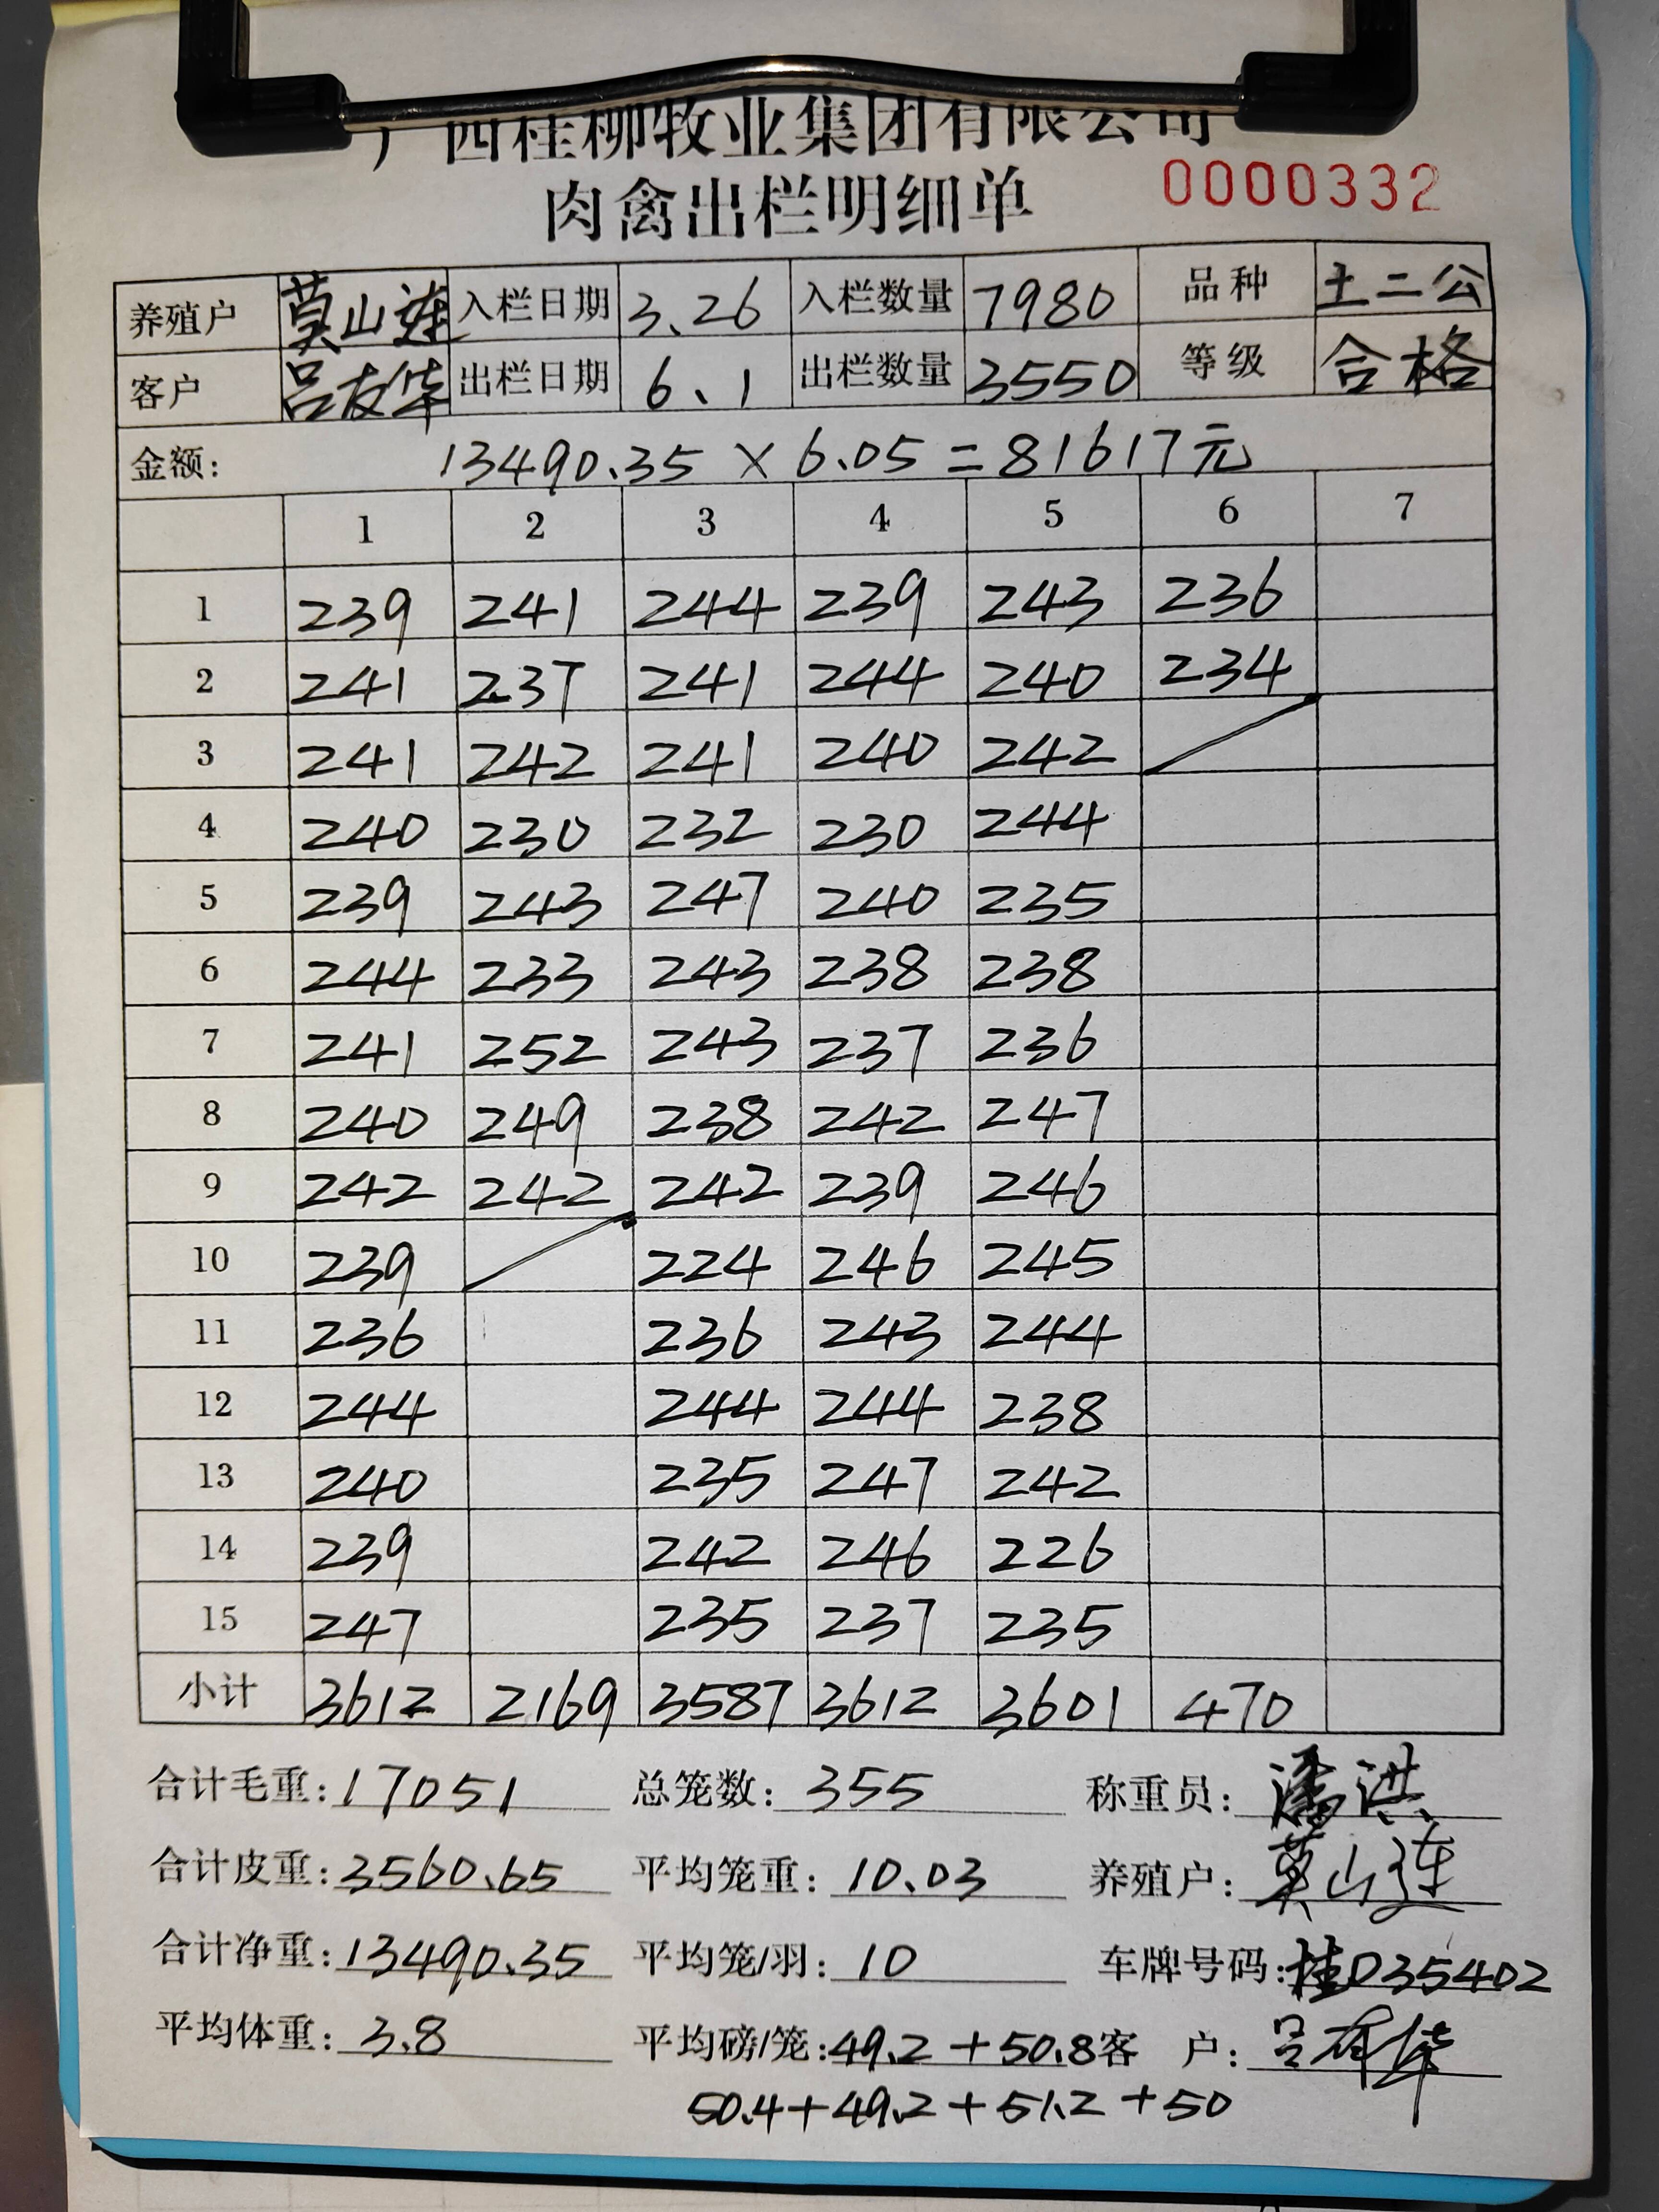 广西桂柳牧业集团有限公司
肉禽出栏明细单 0000332
养殖户 莫山连 入栏日期 3.26 入栏数量 7980 品种 土二公
客户 吕友华 出栏日期 6.1 出栏数量 3550 等级 合格
金额: 13490.35 × 6.05 = 81617元
1 2 3 4 5 6 7
1 239 241 244 239 243 236
2 241 237 241 244 240 234
3 241 242 241 240 242
4 240 230 232 230 244
5 239 243 247 240 235
6 244 233 243 238 238
7 241 252 243 237 236
8 240 249 238 242 247
9 242 242 242 239 246
10 239 224 246 245
11 236 236 243 244
12 244 244 244 238
13 240 235 247 242
14 239 242 246 226
15 247 235 237 235
小计 3612 2169 3587 3612 3601 470
合计毛重: 17051 总笼数: 355 称重员: 潘洪
合计皮重: 3560.65 平均笼重: 10.03 养殖户: 莫山连
合计净重: 13490.35 平均笼/羽: 10 车牌号码: 桂D35402
平均体重: 3.8 平均磅/笼: 49.2 + 50.8 客 户: 吕友华
50.4 + 49.2 + 51.2 + 50